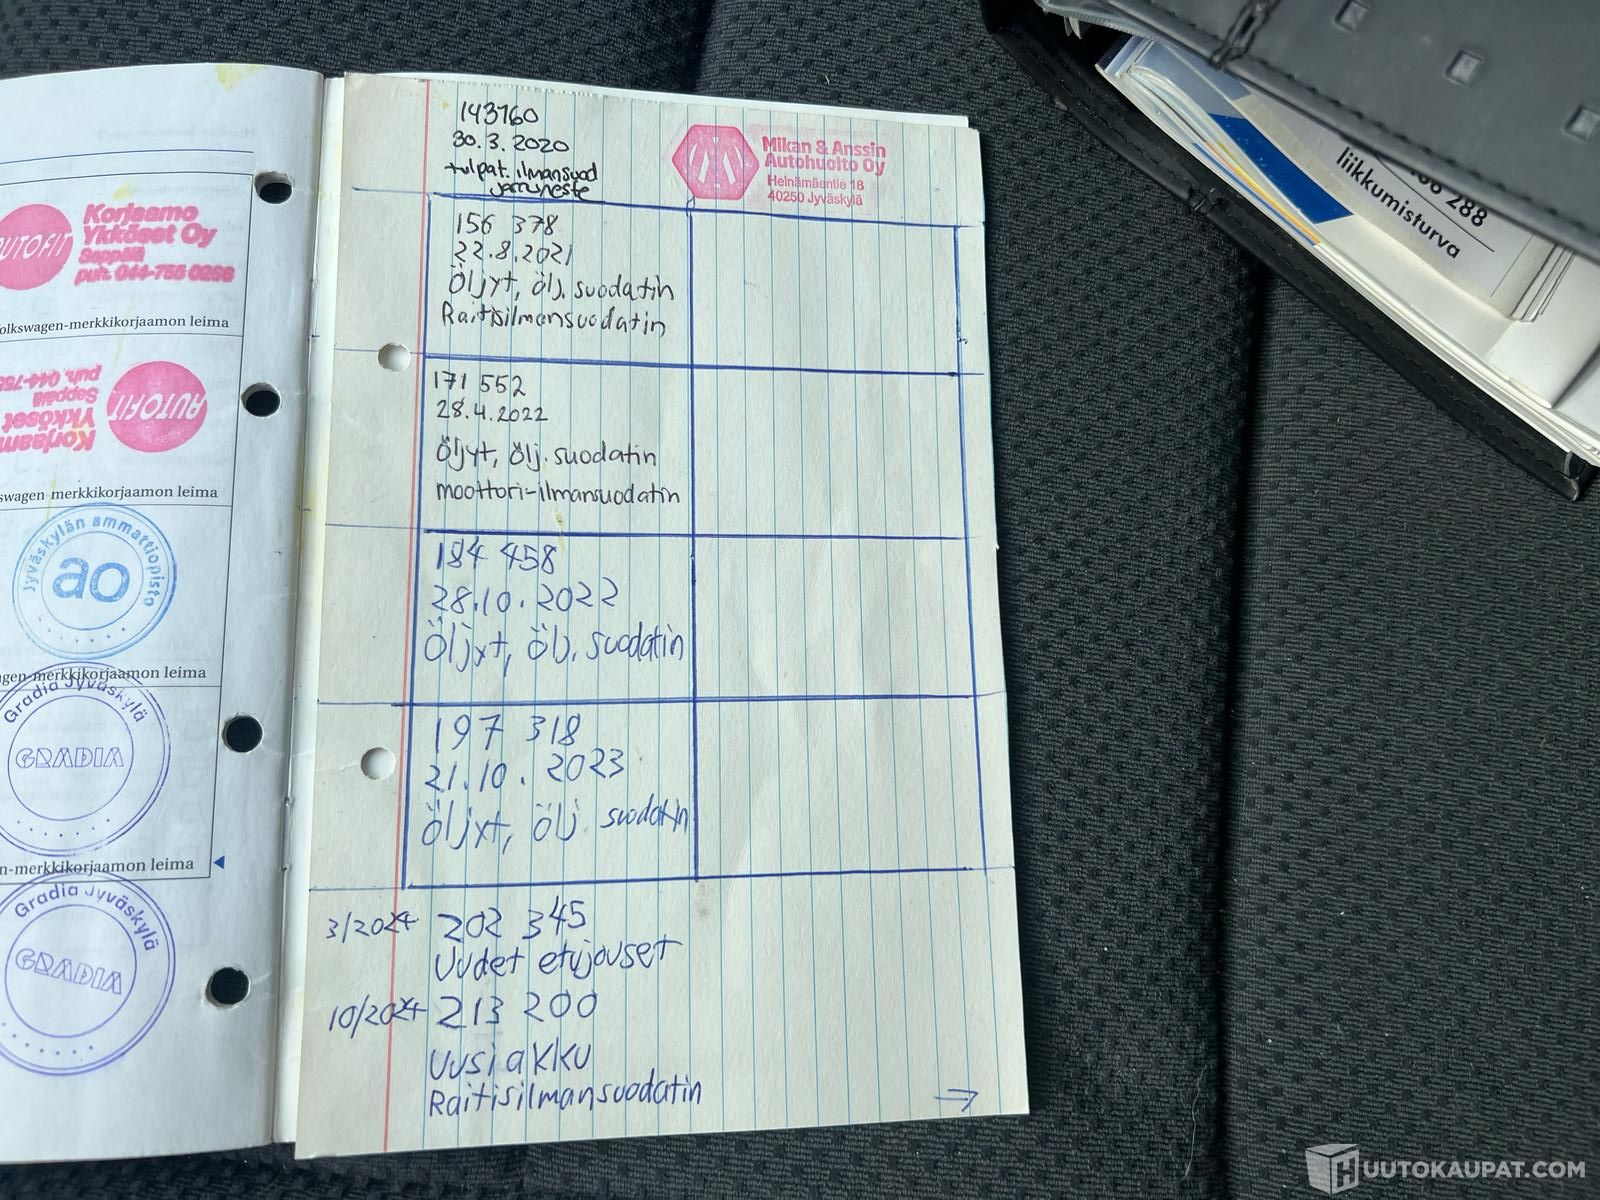 AUTOFIT
Korjaamo
Ykköset Oy
Seppälä
puh. 044-755 0266
olkswagen-merkkikorjaamon leima
AUTOFIT
Korjaam
Ykköset
Seppälä
puh. 044-755
swagen-merkkikorjaamon leima
Jyväskylän ammattiopisto
ao
gen-merkkikorjaamon leima
Gradia Jyväskylä
GRADIA
n-merkkikorjaamon leima
Gradia Jyväskylä
GRADIA
143760
30.3.2020
tulpat. ilmansuod
jarruneste
Mikan & Anssin
Autohuolto Oy
Heinämäentie 18
40250 Jyväskylä
156 378
22.8.2021
Öljyt, ölj. suodatin
Raitisilmansuodatin
171 552
28.4.2022
Öljyt, ölj. suodatin
moottori-ilmansuodatin
184 458
28.10.2022
Öljyt, ölj. suodatin
197 318
21.10.2023
Öljyt, ölj. suodatin
3/2024 202 345
Uudet etujouset
10/2024 213 200
Uusi akku
Raitisilmansuodatin
→
288
liikkumisturva
HUUTOKAUPAT.COM